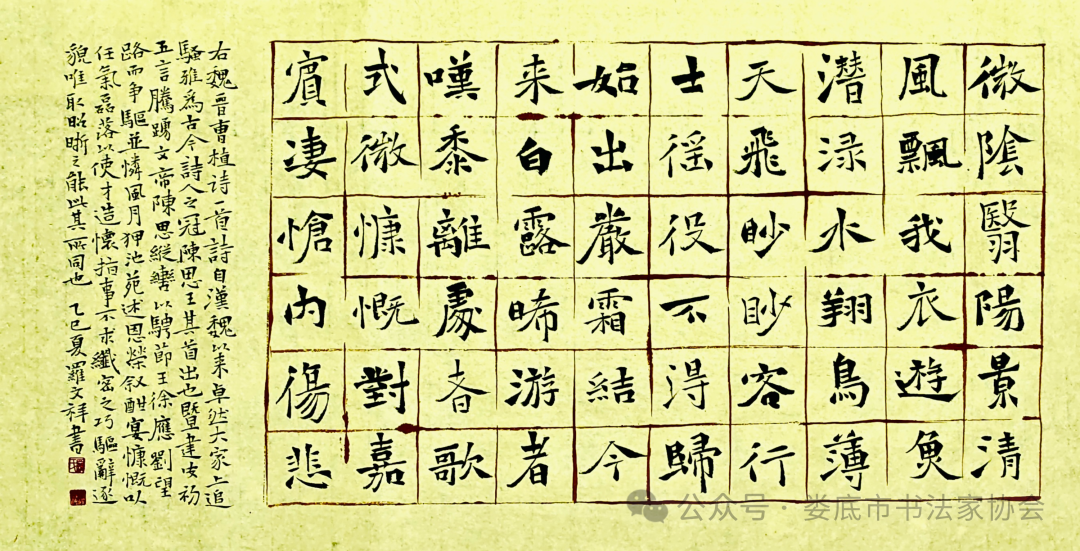 微陰翳陽景清
風飄我衣遊魚
潛渌水翔鳥薄
天飛眇眇客行
士徭役不淂歸
始出嚴霜結今
来白露晞游者
嘆黍離處者歌
式微慷慨對嘉
賓凄愴内傷悲
右魏晋曹植诗一首詩自漢魏以来卓然大家上追
騷雅爲古今詩人之冠陳思王其首出也暨建安初
五言騰踴文帝陳思縱轡以騁節王徐應劉望
路而争驅並憐風月狎池苑述恩榮叙酣宴慷慨以
任氣磊落以使才造懷指事不求纖密之巧驅辭逐
貌唯取昭晰之能此其所同也 乙巳夏羅文祥書
公众号·娄底市书法家协会